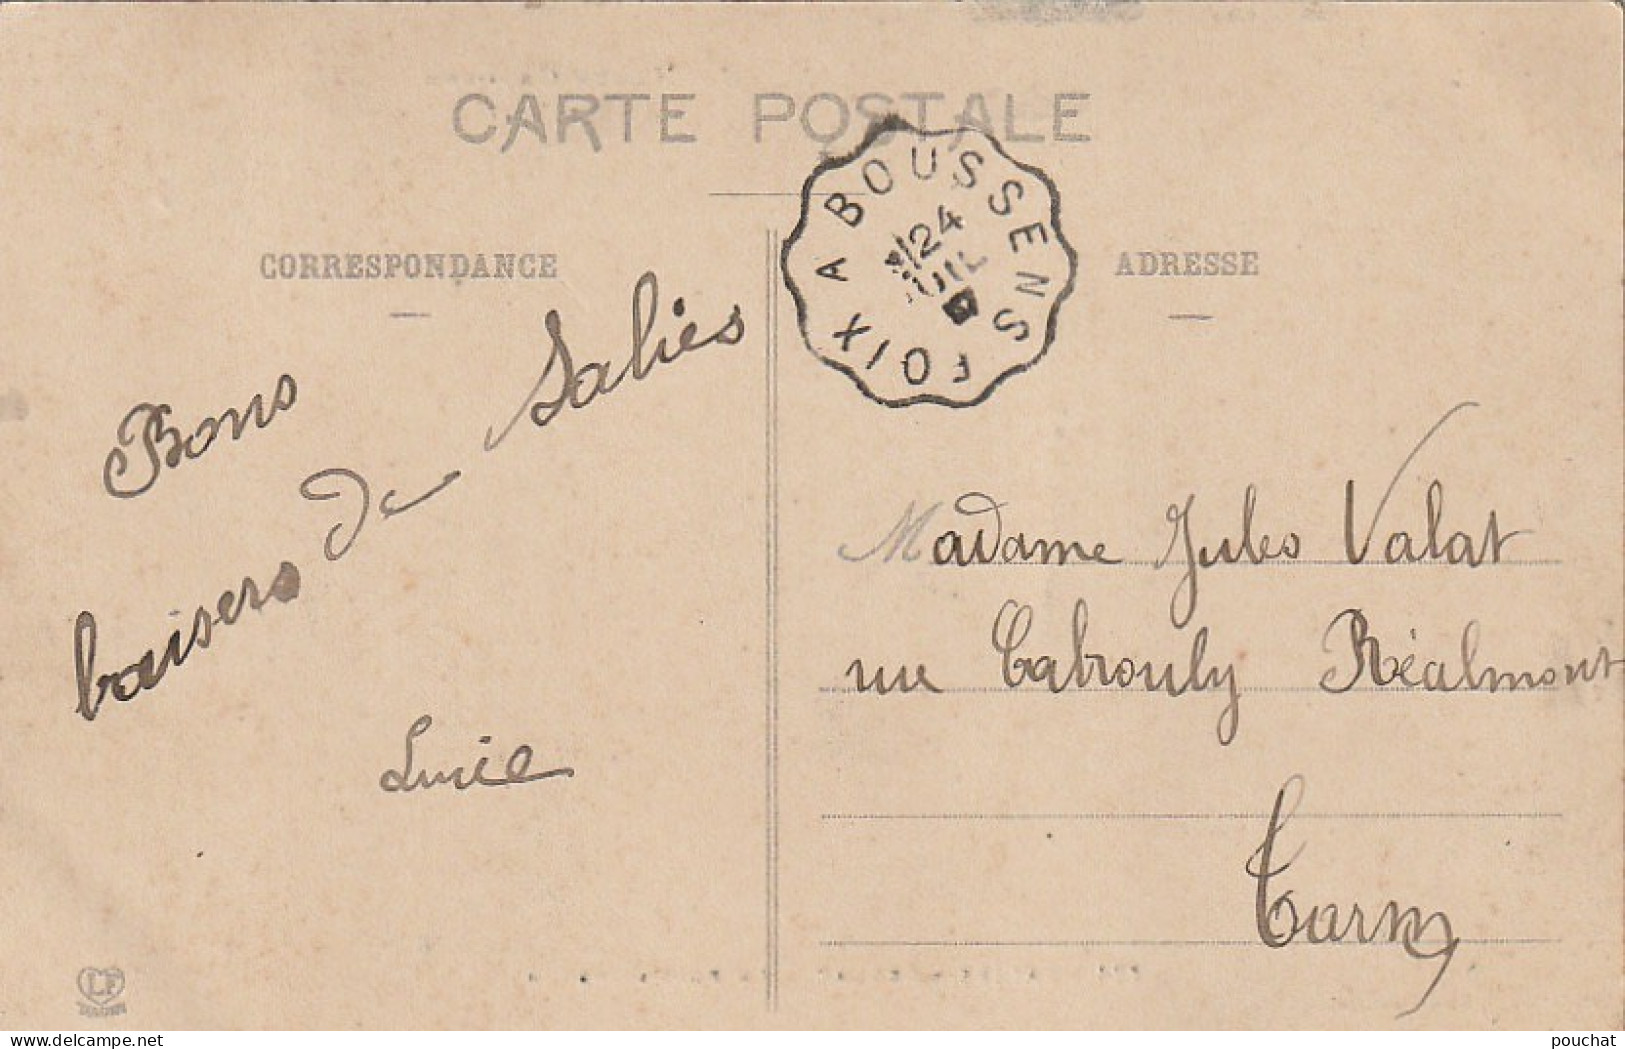 CARTE POSTALE
CORRESPONDANCE
ADRESSE
FOIX A BOUSSENS
24
JUIL
Bons
baisers de Salies
Lucie
Madame Jules Valat
rue Cabrouly Réalmont
Tarn
LF
www.delcampe.net
pouchat